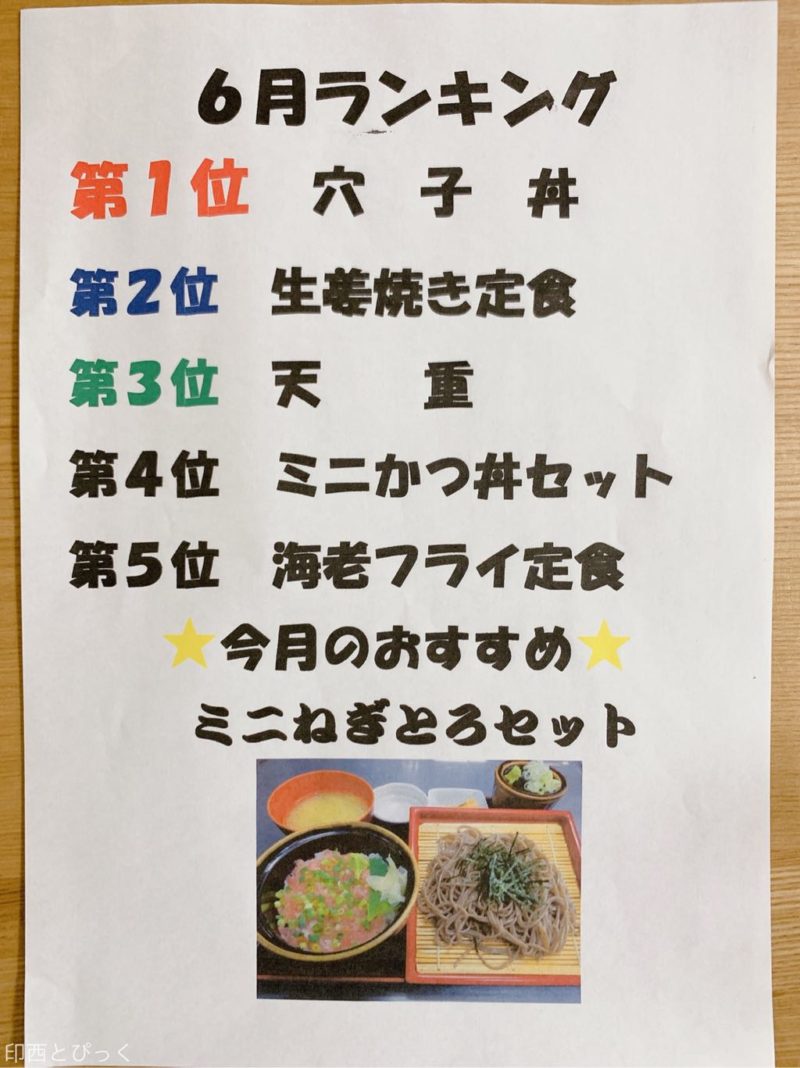 6月ランキング
第1位 穴子丼
第2位 生姜焼き定食
第3位 天重
第4位 ミニかつ丼セット
第5位 海老フライ定食
★今月のおすすめ★
ミニねぎとろセット
印西とぴっく